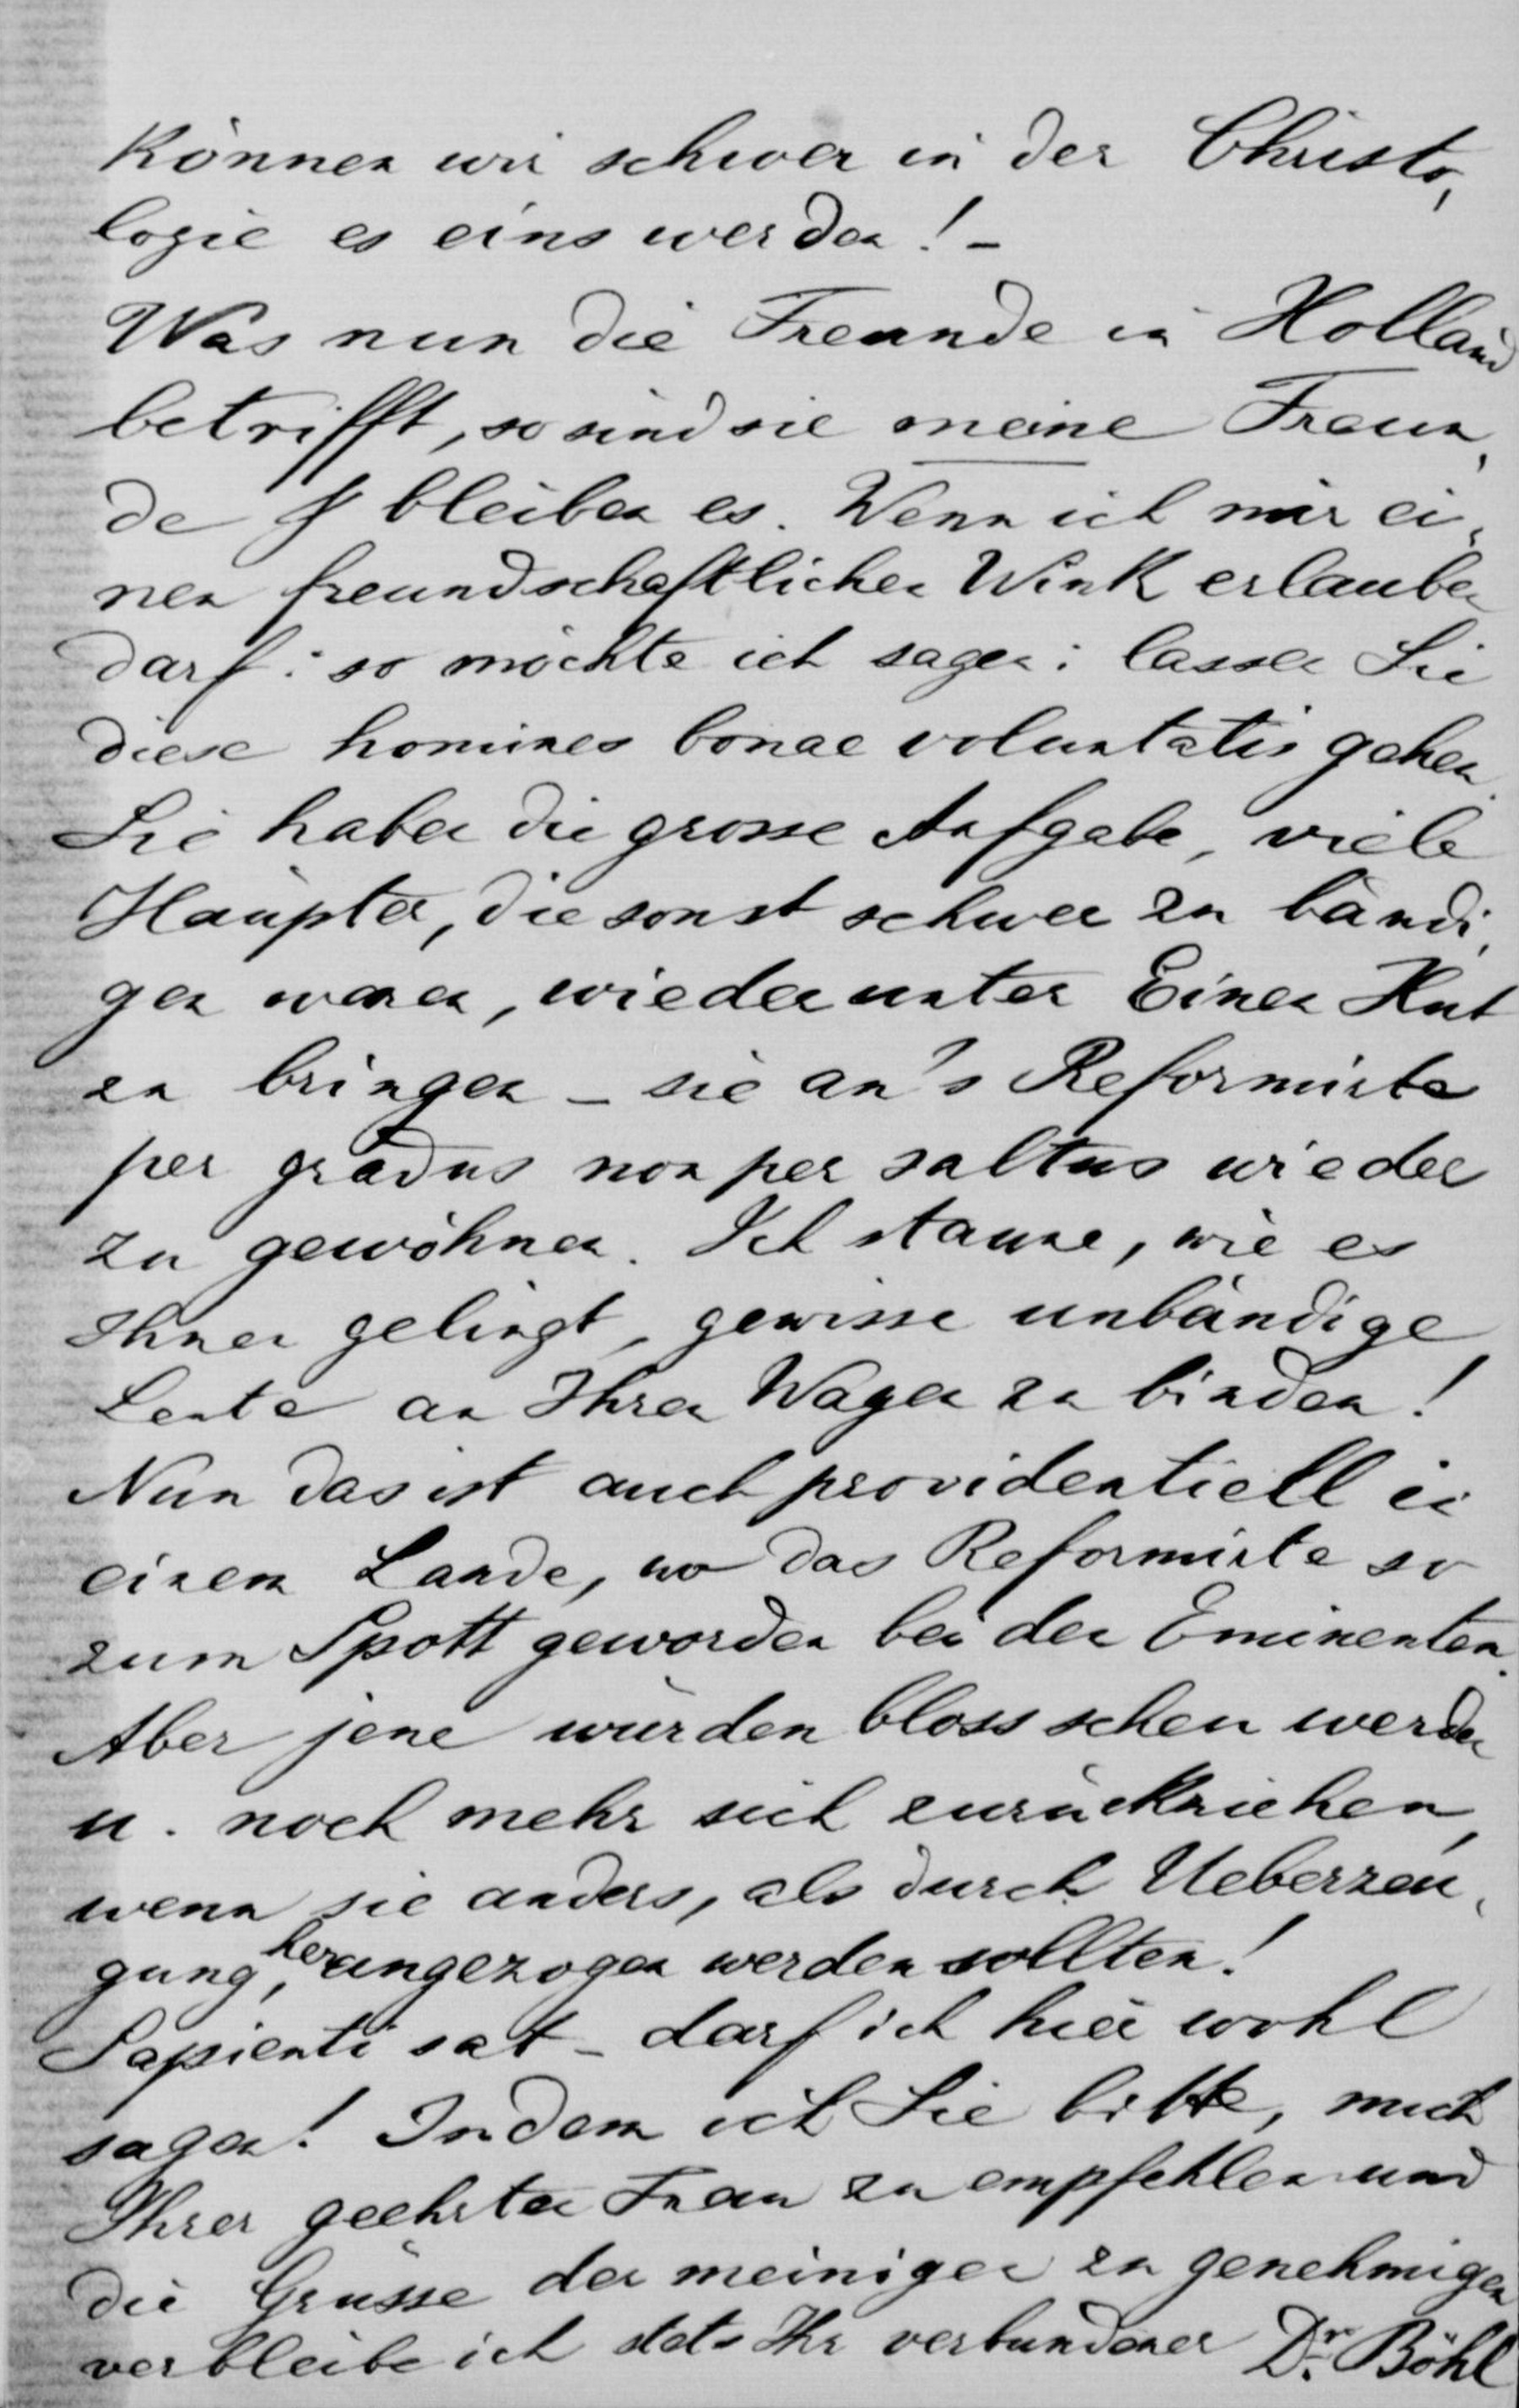 können wir schwer in der Christo,
logie es eins werden! –
Was nun die Freunde in Holland
betrifft, so sind sie meine Freun,
de & bleiben es. Wenn ich mir ei,
nen freundschaftlichen Wink erlauben
darf: so möchte ich sagen: lassen Sie
diese homines bonae voluntatis gehen.
Sie haben die grosse Aufgabe, viele
Häupter, die sonst schwer zu bändi,
gen waren, wieder unter Einen Hut
zu bringen – sie an's Reformirte
per gradus non per saltus wieder
zu gewöhnen. Ich staune, wie es
Ihnen gelingt, gewisse unbändige
Leute an Ihren Wagen zu binden!
Nun das ist auch providentiell in
einem Lande, wo das Reformirte so
zum Spott geworden bei den Eminenten.
Aber jene würden bloss scheu werden
u. noch mehr sich zurückziehen,
wenn sie anders, als durch Ueberzeu,
gung, herangezogen werden sollten!
Sapienti sat – darf ich hier wohl
sagen! Indem ich Sie bitte, mich
Ihrer geehrten Frau zu empfehlen und
die Grüsse der meinigen zu genehmigen
verbleibe ich stets Ihr verbundener Dr. Böhl